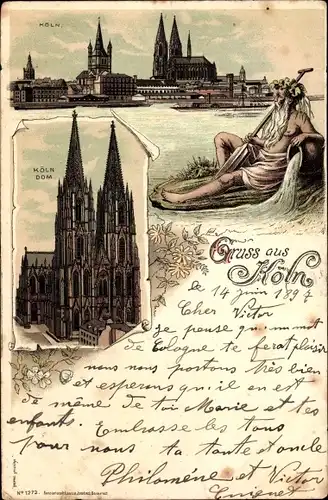 KÖLN.
KÖLN
DOM.
Gruss aus
Köln
le 14 juin 1897
Cher Victor
Je pense qu'un mot
de Cologne te ferat plaisir
nous nous portons très bien
et esperons qu'il en est
de même de toi Marie et tes
enfants. Embrasse les tous
pour nous ta tante et oncle
Philomène et Victor
No 1372.